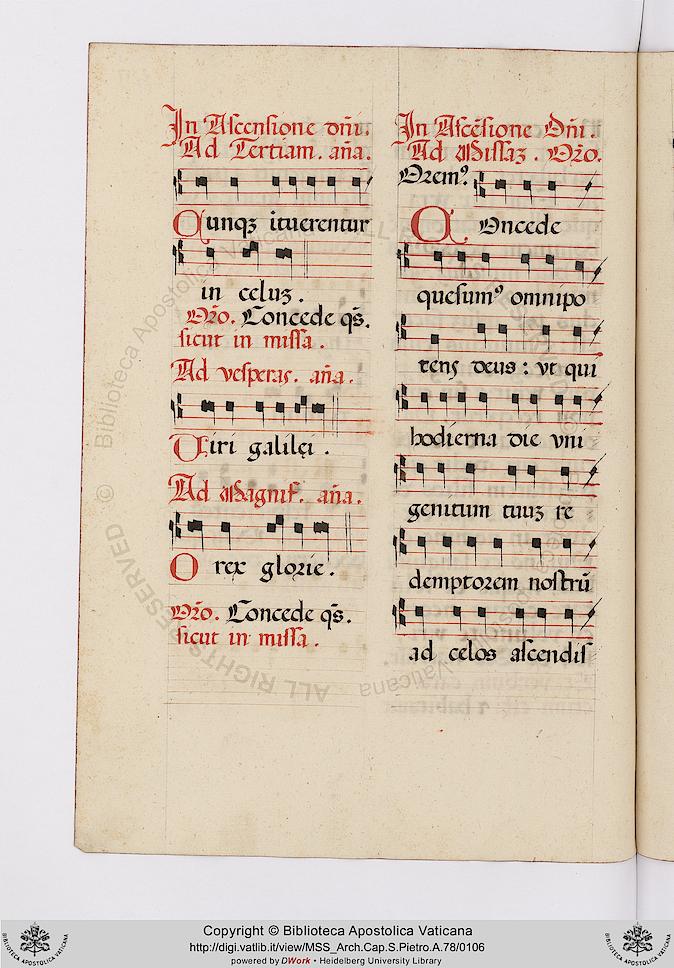 In Ascensione dñi.
Ad Tertiam. aña.
Cunqꝫ ituerentur
in celuꝫ.
Oꝛ̃o. Concede qs̃.
sicut in missa.
Ad vesperas. aña.
Viri galilęi.
Ad Magnif. aña.
O rex glorie.
Oꝛ̃o. Concede qs̃.
sicut in missa.
In Ascẽsione Dñi.
Ad Missaꝫ. Oꝛ̃o.
Oremꝰ.
COncede
quesumꝰ omnipo
tens deus: vt qui
hodierna die vni
genitum tuuꝫ re
demptorem nostrũ
ad celos ascendis
Copyright © Biblioteca Apostolica Vaticana
http://digi.vatlib.it/view/MSS_Arch.Cap.S.Pietro.A.78/0106
powered by DWork • Heidelberg University Library
BIBLIOTECA APOSTOLICA VATICANA
BIBLIOTECA APOSTOLICA VATICANA